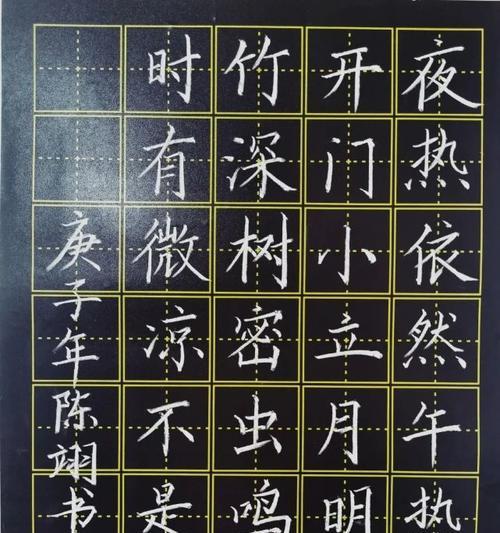 夜热依然午热
开门小立月明
竹深树密虫鸣
时有微凉不是
庚子年陈翊书